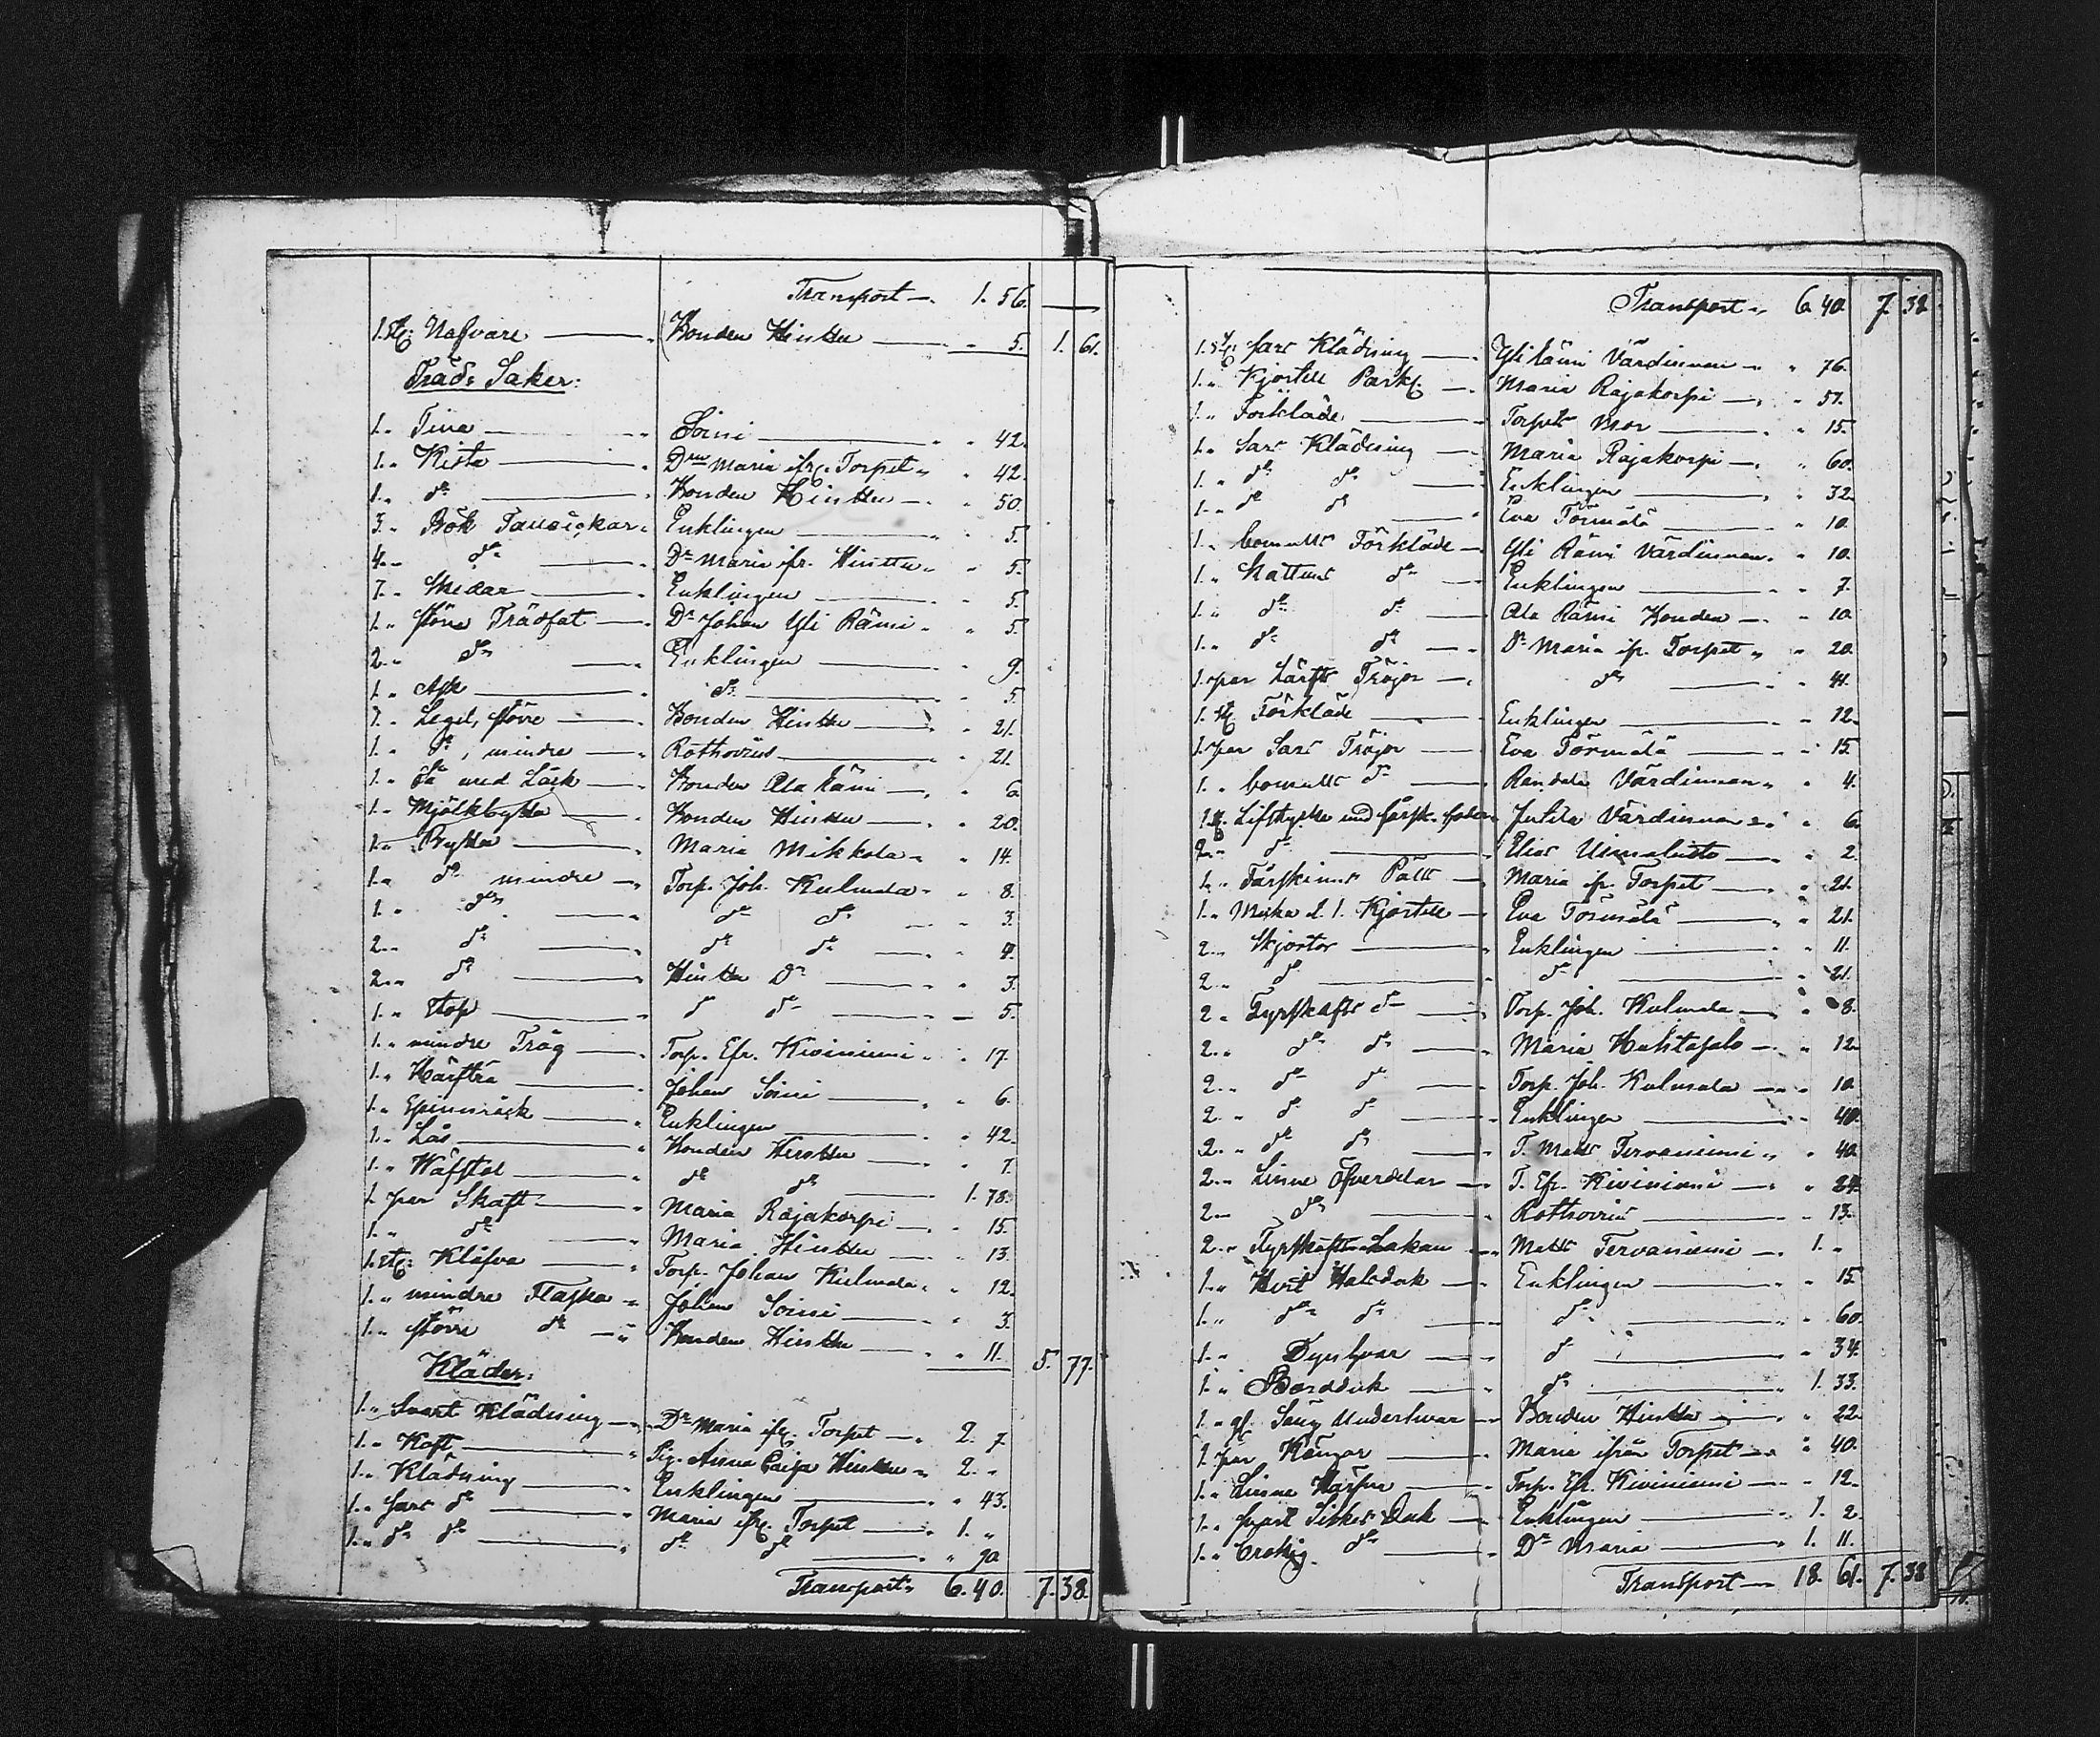 Transport — 1. 56. —
1. st. Nafvare — Bonden Hinttu — " 5. 1. 61.
Träd: Saker:
1. " Tina — Soini — " 42.
1. " Kista — D:n Maria ifr. Torpet " " 42.
1. " d:o — Bonden Hinttu — " 50.
3. " Bök — Enklingen — " 5.
4. " d:o — D:n Maria ifr. Hinttu " " 5.
7. " Skedar — Enklingen — " 5.
1. " större Trädfat — D:n Johan Yli Rämi " " 5.
2. " d:o — Enklingen — " 9.
1. " Ask — d:o — " 5.
1. " Legel, större — Bonden Hinttu — " 21.
1. " d:o, mindre — Rothovius — " 21.
1. " Så med Låck — Bonden Ala Rämi — " 6
1. " Mjölkbytta — Bonden Hinttu — " 20.
1. " Bytta — Maria Mikkola " " 14.
1. " d:o mindre — Torp. Joh. Kulmala " " 8.
1. " d:o — d:o d:o " " 3.
2. " d:o — d:o d:o — " 4.
2. " d:o — Hinttu D:n — " 3.
1. " Stop — d:o d:o — 5.
1. " mindre Tråg — Torp. Efr. Kiviniemi " " 17.
1. " Härfta — Johan Soini — " 6.
1. " Spinnråck — Enklingen — " 42.
1. " Lås — Bonden Hinttu — " 7.
1. " Wäfstol — d:o d:o — 1. 78.
1. par Skaft — Maria Rajakorpi — " 15.
1. " d:o — Maria Hinttu — " 13.
1. st. Klåfva — Torp. Johan Kulmala " " 12.
1. " mindre Flaska — Johan Soini — " 3.
1. " större d:o — Bonden Hinttu — " 11. 5. 77.
Kläder:
1. " Svart Klädning — D:n Maria ifr. Torpet — 2. 7.
1. " Koft — Pig. Anna Caisa Hinttu " 2. "
1. " Klädning — Enklingen — " 43.
1. " Sars d:o — Maria ifr. Torpet — 1. "
1. " d:o d:o — d:o d:o — " 90
Transport " 6. 40. 7. 38.
Transport " 6. 40. 7. 38.
1. st. Sars Klädning — Yli Rämi Värdinnan " " 76.
1. " Kjortell — Maria Rajakorpi — " 51.
1. " Förkläde — Torpets Mor — " 15.
1. " Sars Klädning — Maria Rajakorpi — " 60.
1. " d:o d:o — Enklingen — " 32.
1. " d:o d:o — Eva Törmälä — " 10.
1. " bomulls Förkläde — Yli Rämi Värdinnan " " 10.
1. " Kattuns d:o — Enklingen — " 7.
1. " d:o d:o — Ala Rämi Bonden — " 10.
1. " d:o d:o — D:n Maria ifr. Torpet " " 20.
1. par Lärfts Tröjor — d:o — " 41.
1. st. Förkläde — Enklingen — " 12.
1. par Sars Tröjor — Eva Törmälä — " 15.
1. " bomulls d:o — Värdinnan " " 4.
1. st. Lifstycke med — Värdinnan " " 6.
2. " d:o — Elias — " 2.
1. " Fårskinns Päls — Maria ifr. Torpet — " 21.
1. " 1. Kjortell — Eva Törmälä — " 21.
2. " Skjortor — Enklingen — " 11.
2. " d:o — d:o — " 21.
2. " Fyrskafts d:o — Torp. Joh. Kulmala — " 8.
2. " d:o d:o — Maria — " 12.
2. " d:o d:o — Torp. Joh. Kulmala — " 10.
2. " d:o d:o — Enklingen — " 40.
2. " d:o d:o — T. Matts Tervaniemi " " 40.
2. " Linne Öfverdelar — T. Efr. Kiviniemi — " 24.
2. " d:o — Rothovius — " 13.
2. " Fyrskafts Lakan — Matts Tervaniemi — 1. "
1. " Hvit Halsduk — Enklingen — " 15.
1. " d:o d:o — d:o — " 60.
1. " Dynhvar — d:o — " 34.
1. " Bordduk — d:o — 1. 33.
1. " gl. Säng Underhvar — Bonden Hinttu — " 22.
1. par Kängor — Maria ifrån Torpet — " 40.
1. " Linne — Torp. Efr. Kiviniemi — " 12.
1. " svart Silkes Duk — Enklingen — 1. 2.
1. " brokig d:o — D:n Maria — 1. 11.
Transport — 18. 61. 7. 38